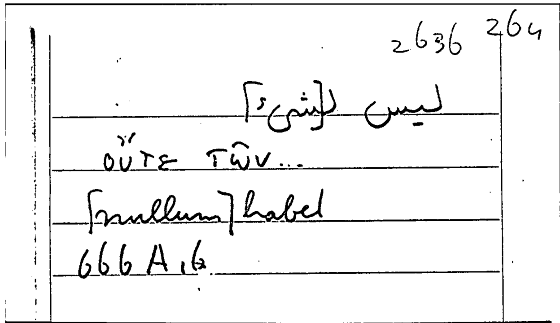 2636 264
ليس [شيء]
οὔτε τῶν...
[nullum] habet
666 A, 6